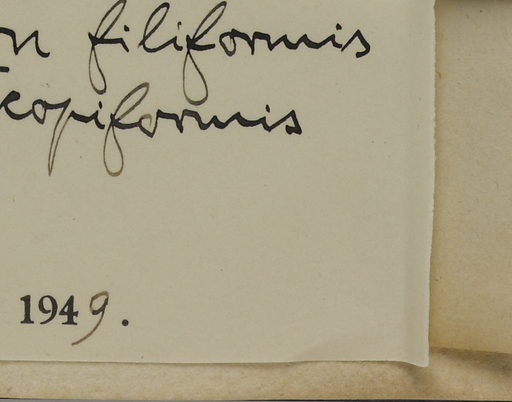 n filiformis
copiformis
1949.